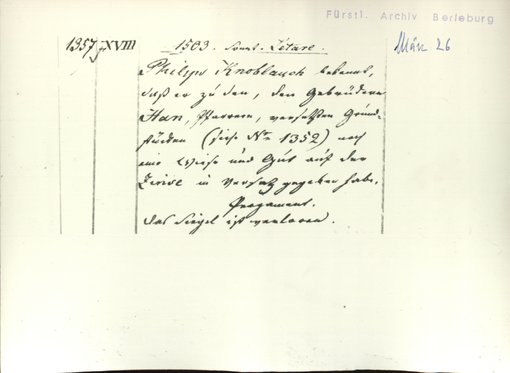 Fürstl. Archiv Berleburg
1357 XVIII 1503. Sonnt. Letare. März 26
Philips Knoblauch bekennt,
daß er zu den, den Gebrüdern
Han, Pfarrern, versetzten Grund-
stücken (siehe No 1352) noch
eine Wiese und Gut auf der
in Versatz gegeben habe.
Pergament.
das Siegel ist verloren.